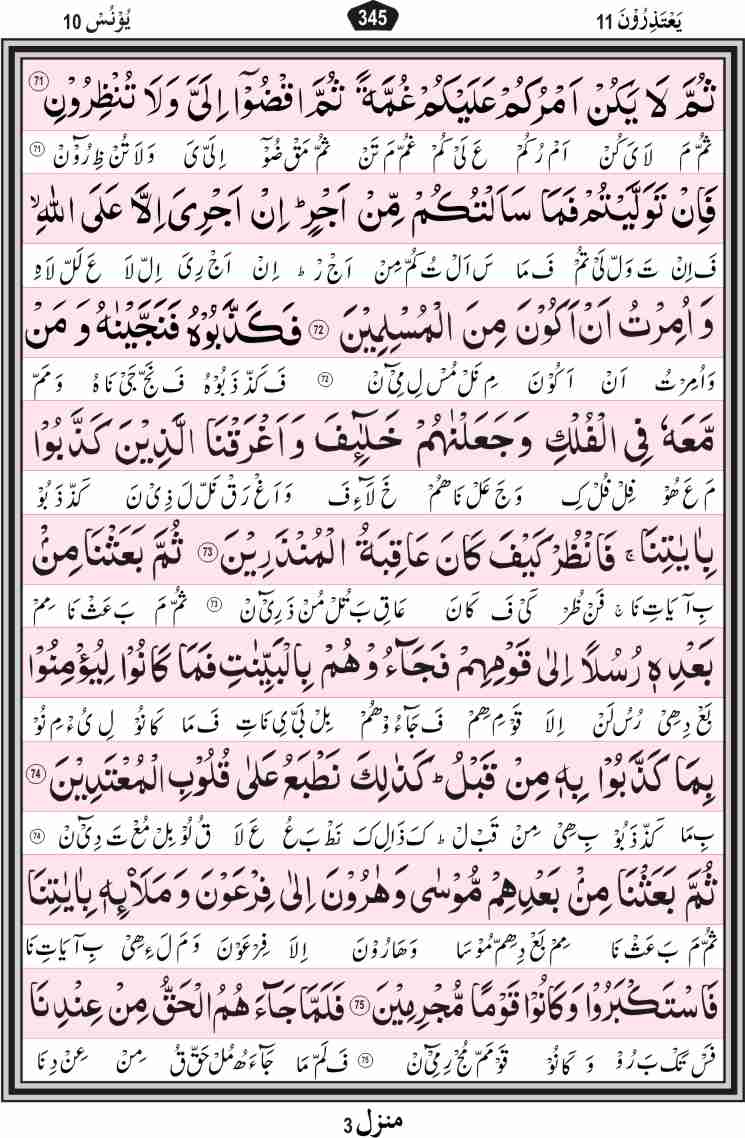 یَعْتَذِرُوْنَ 11 345 یُوْنُسْ 10
ثُمَّ لَا یَكُنْ اَمْرُكُمْ عَلَیْكُمْ غُمَّةً ثُمَّ اقْضُوْۤا اِلَیَّ وَلَا تُنْظِرُوْنِ 71
ثُمْ مَ لَا یَ كُنْ اَمْ رُ كُمْ عَ لَیْ كُمْ غُمْ مَ تَنْ ثُمْ مَقْ ضُوْۤ اِلَیْ یَ وَ لَا تُنْ ظِ رُوْٓنْ 71
فَاِنْ تَوَلَّیْتُمْ فَمَا سَاَلْتُكُمْ مِّنْ اَجْرٍ ؕ اِنْ اَجْرِیَ اِلَّا عَلَی اللّٰهِ ۙ
فَ اِنْ تَ وَلْ لَیْ تُمْ فَ مَا سَ اَلْ تُ كُمْ مِنْ اَجْ رْ ؕ اِنْ اَجْ رِیَ اِلْ لَا عَ لَلْ لَاهِ
وَ اُمِرْتُ اَنْ اَكُوْنَ مِنَ الْمُسْلِمِیْنَ 72 فَكَذَّبُوْهُ فَنَجَّیْنٰهُ وَ مَنْ
وَ اُمِرْ تُ اَنْ اَ كُوْنَ مِ نَلْ مُسْ لِ مِیْٓنْ 72 فَ كَذْ ذَ بُوْهُ فَ نَجْ جَیْ نَا هُ وَ مَمْ
مَّعَهٗ فِی الْفُلْكِ وَ جَعَلْنٰهُمْ خَلٰٓىِٕفَ وَ اَغْرَقْنَا الَّذِیْنَ كَذَّبُوْا
مَ عَ هُوْ فِلْ فُلْ كِ وَ جَ عَلْ نَا هُمْ خَ لَآءِ فَ وَ اَغْ رَقْ نَلْ لَ ذِیْ نَ كَذْ ذَ بُوْ
بِاٰیٰتِنَا ۚ فَانْظُرْ كَیْفَ كَانَ عَاقِبَةُ الْمُنْذَرِیْنَ 73 ثُمَّ بَعَثْنَا مِنْۢ
بِ آیَاتِ نَا ۚ فَنْ ظُرْ كَیْ فَ كَانَ عَاقِ بَ تُلْ مُنْ ذَ رِیْٓنْ 73 ثُمْ مَ بَ عَثْ نَا مِمْ
بَعْدِهٖ رُسُلًا اِلٰی قَوْمِهِمْ فَجَآءُوْهُمْ بِالْبَیِّنٰتِ فَمَا كَانُوْا لِیُؤْمِنُوْا
بَعْ دِهِیْ رُ سُ لَنْ اِلَا قَوْ مِ هِمْ فَ جَآءُ وْ هُمْ بِلْ بَیْ یِ نَاتِ فَ مَا كَا نُوْ لِ یُءْ مِ نُوْ
بِمَا كَذَّبُوْا بِهٖ مِنْ قَبْلُ ؕ كَذٰلِكَ نَطْبَعُ عَلٰی قُلُوْبِ الْمُعْتَدِیْنَ 74
بِ مَا كَذْ ذَ بُوْ بِ هِیْ مِنْ قَبْ لْ ؕ كَ ذَالِ كَ نَطْ بَ عُ عَ لَا قُ لُوْ بِلْ مُعْ تَ دِیْٓنْ 74
ثُمَّ بَعَثْنَا مِنْۢ بَعْدِهِمْ مُّوْسٰی وَ هٰرُوْنَ اِلٰی فِرْعَوْنَ وَ مَلَا۠ئِهٖ بِاٰیٰتِنَا
ثُمْ مَ بَ عَثْ نَا مِمْ بَعْ دِهِمْ مُوْسَا وَ هَا رُوْنَ اِلَا فِرْ عَوْنَ وَ مَ لَ ءِ هِیْ بِ آیَاتِ نَا
فَاسْتَكْبَرُوْا وَ كَانُوْا قَوْمًا مُّجْرِمِیْنَ 75 فَلَمَّا جَآءَ هُمُ الْحَقُّ مِنْ عِنْدِنَا
فَسْ تَكْ بَ رُوْ وَ كَانُوْ قَوْ مَمْ مُجْ رِمِیْٓنْ 75 فَ لَمْ مَا جَآءَ هُ مُلْ حَقْ قُ مِنْ عِنْ دِ نَا
منزل 3